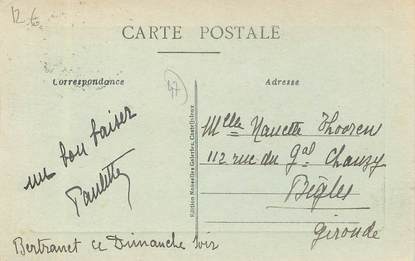 12 €
CARTE POSTALE
Correspondance
47
Adresse
un bon baiser
Paulette
Edition Nouvelles Galeries, Castelijaloux
Melle Nanette Thooren
112 rue du Gal Chanzy
Bègles
Gironde
Bertranet ce Dimanche soir